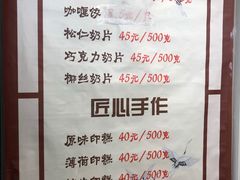 咖喱饺
松仁奶片 45元/500克
巧克力奶片 45元/500克
椰丝奶片 45元/500克
匠心手作
原味印糕 40元/500克
薄荷印糕 40元/500克
40元/500克